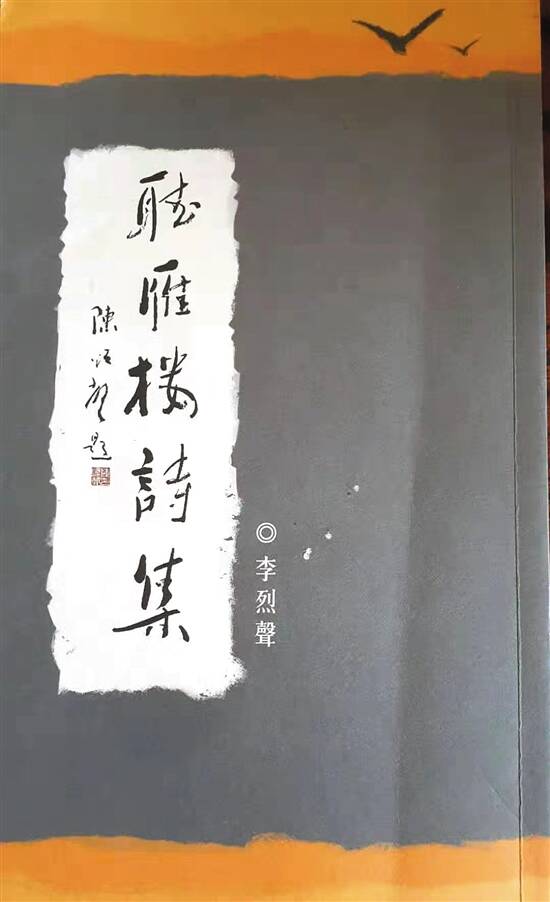 聽雁樓詩集
陳 聲題
◎李烈聲